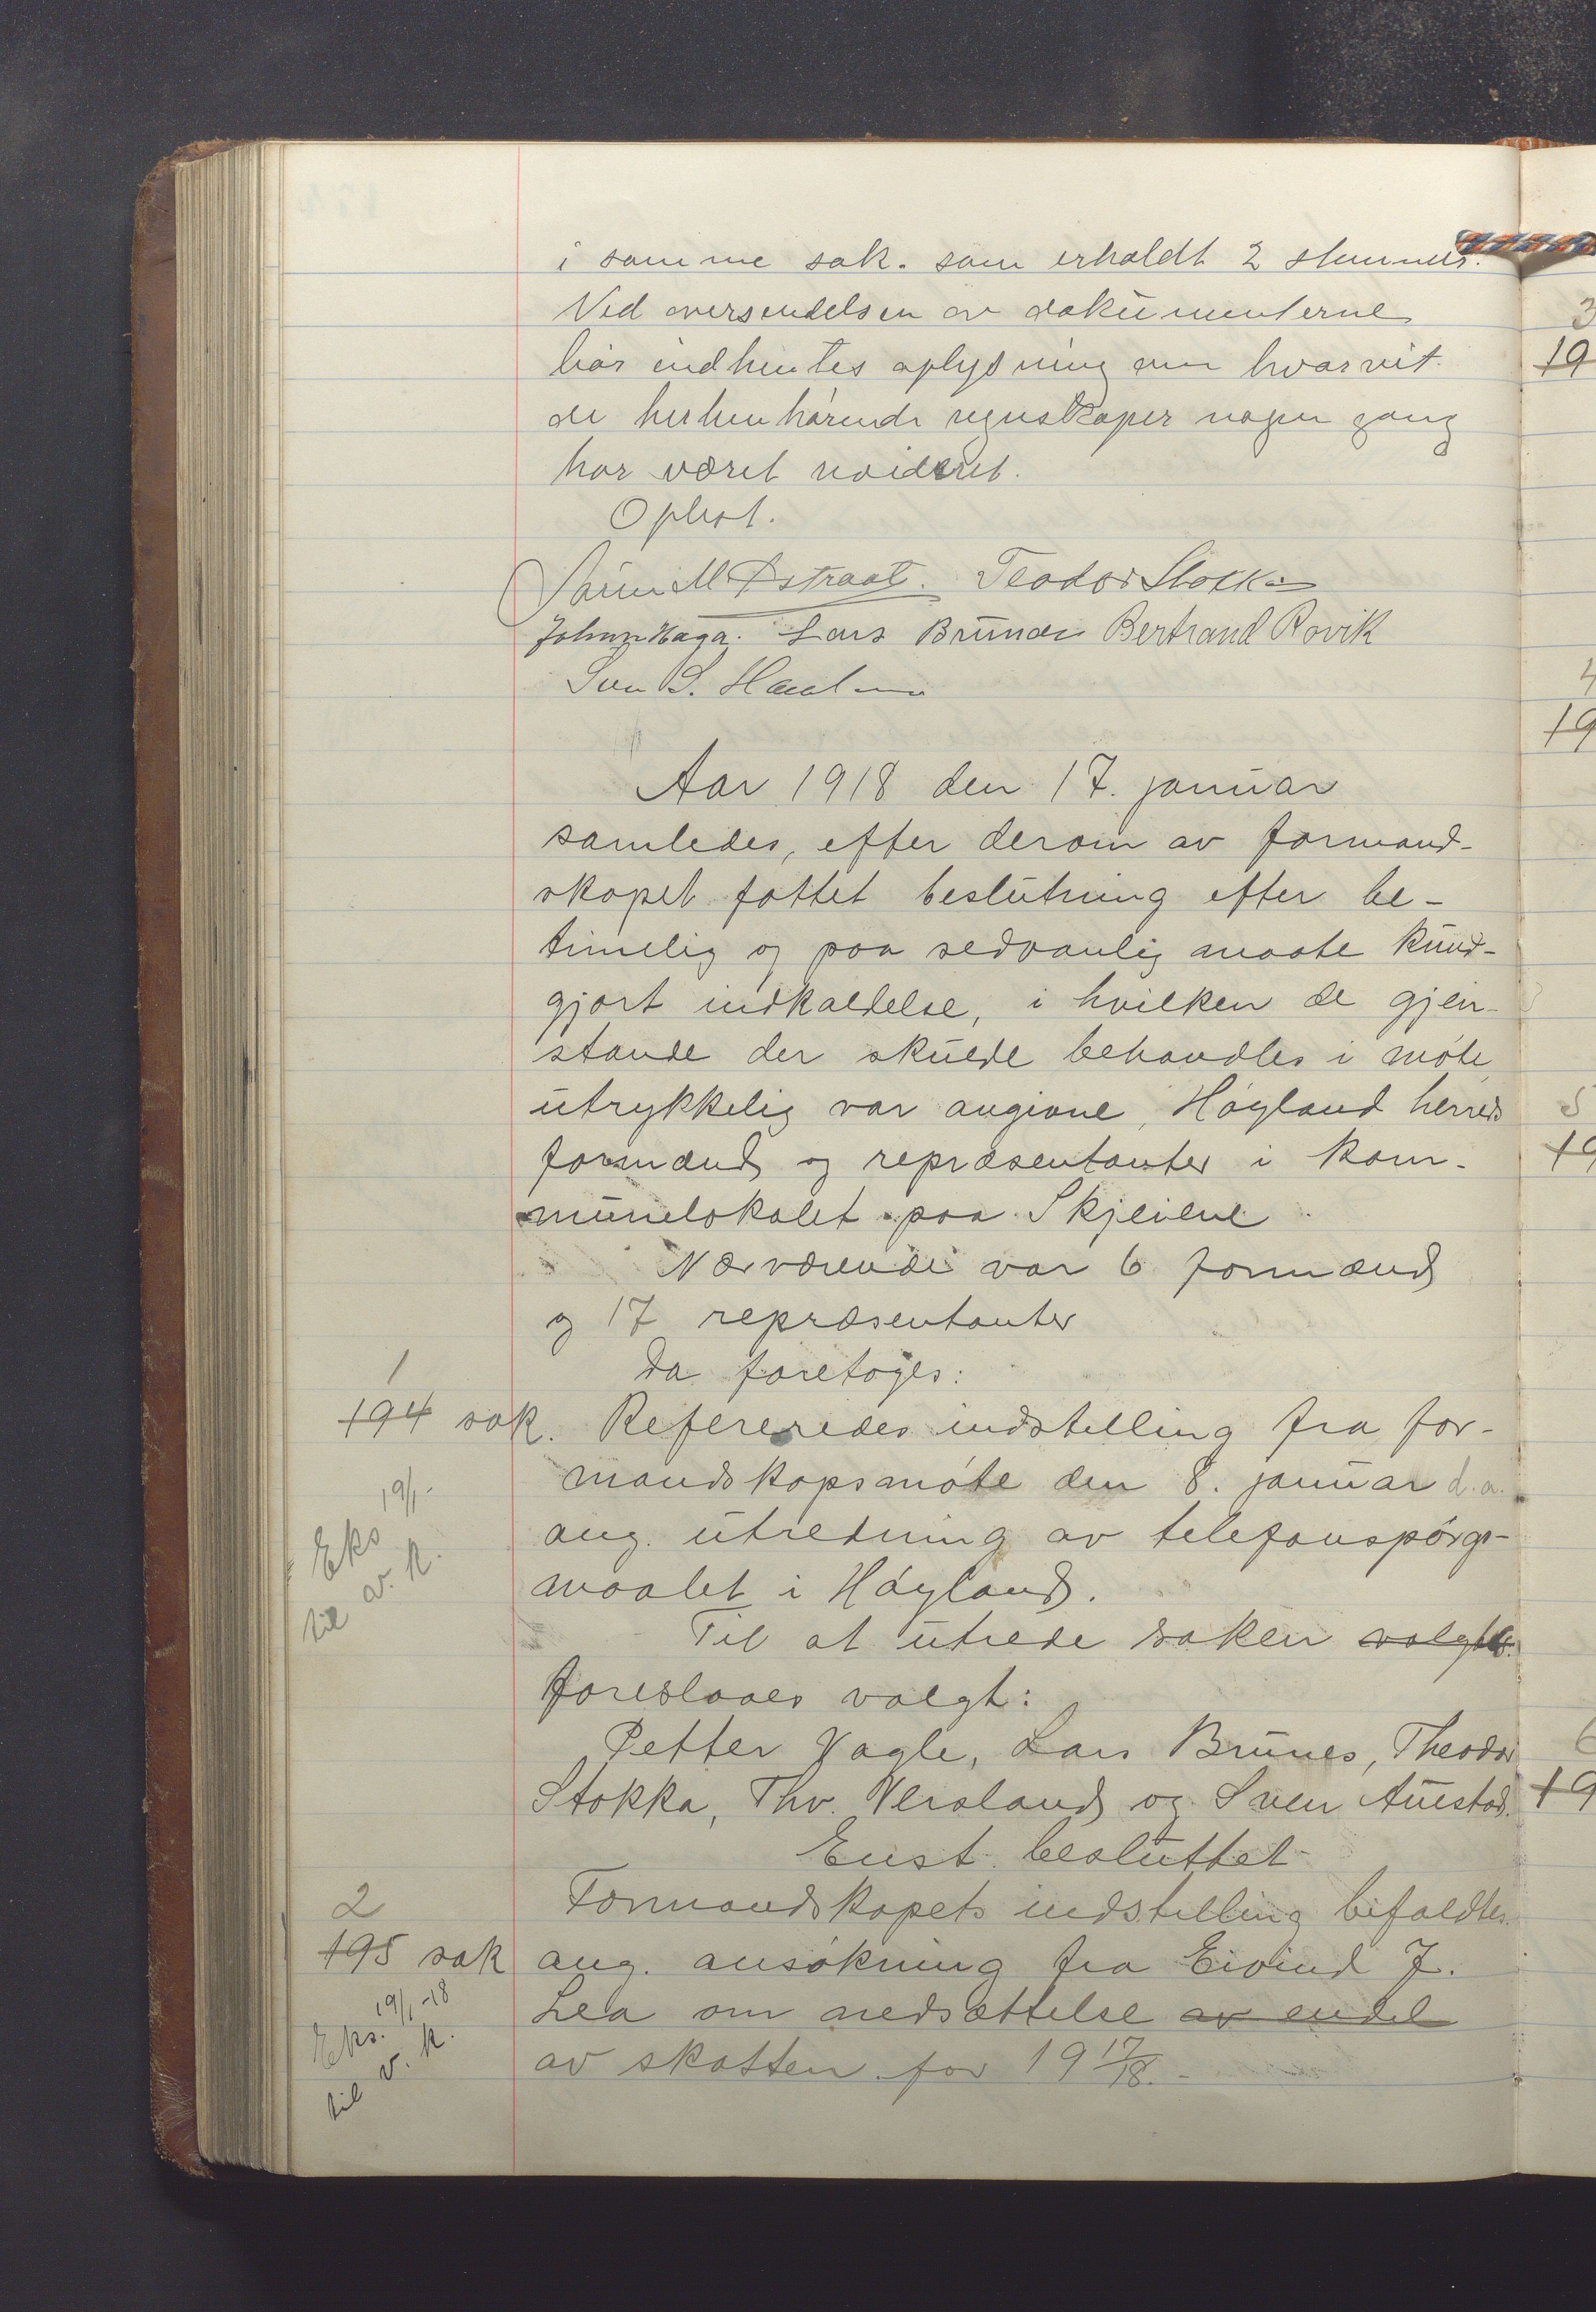 i samme sak. som erholdt 2 stemmer.
Ved oversendelsen av dokumenterne
bør indhentes oplysning om hvorvit
de herhenhørende regnskaper nogen gang
har været revideret.
Ophat.
M Astraat. Teodor Stokka
Johan Haga. Lars Brunes Bertrand Rovik
Sven S.
Aar 1918 den 17. januar
samledes, efter derom av formand-
skapet fattet beslutning efter be-
timelig og paa sedvanlig maate kund-
gjort indkaldelse, i hvilken de gjen-
stande der skulde behandles i møte
utrykkelig var angivne, Høyland herreds
formænd og repræsentanter i kom-
munelokalet paa Skjeiene
Nærværende var 6 formænd
og 17 repræsentanter
Da foretoges:
1
194 sak. Refereredes indstilling fra for-
mandskapsmøte den 8. januar d.a.
ang. utredning av telefonspørgs-
maalet i Høyland.
19/1-
Eks
til v. k.
Til at utrede saken valgtes
foreslaaes valgt:
Petter Vagle, Lars Brunes, Theodor
Stokka, Thv. Versland og Sven Auestad.
Enst. besluttet
2
Formandskapets indstilling bifaldtes
195 sak ang. ansøkning fra Eivind J.
Lea om nedsættelse av endel
av skatten for 19 17/18.-
19/1-18
Eks.
til v. k.